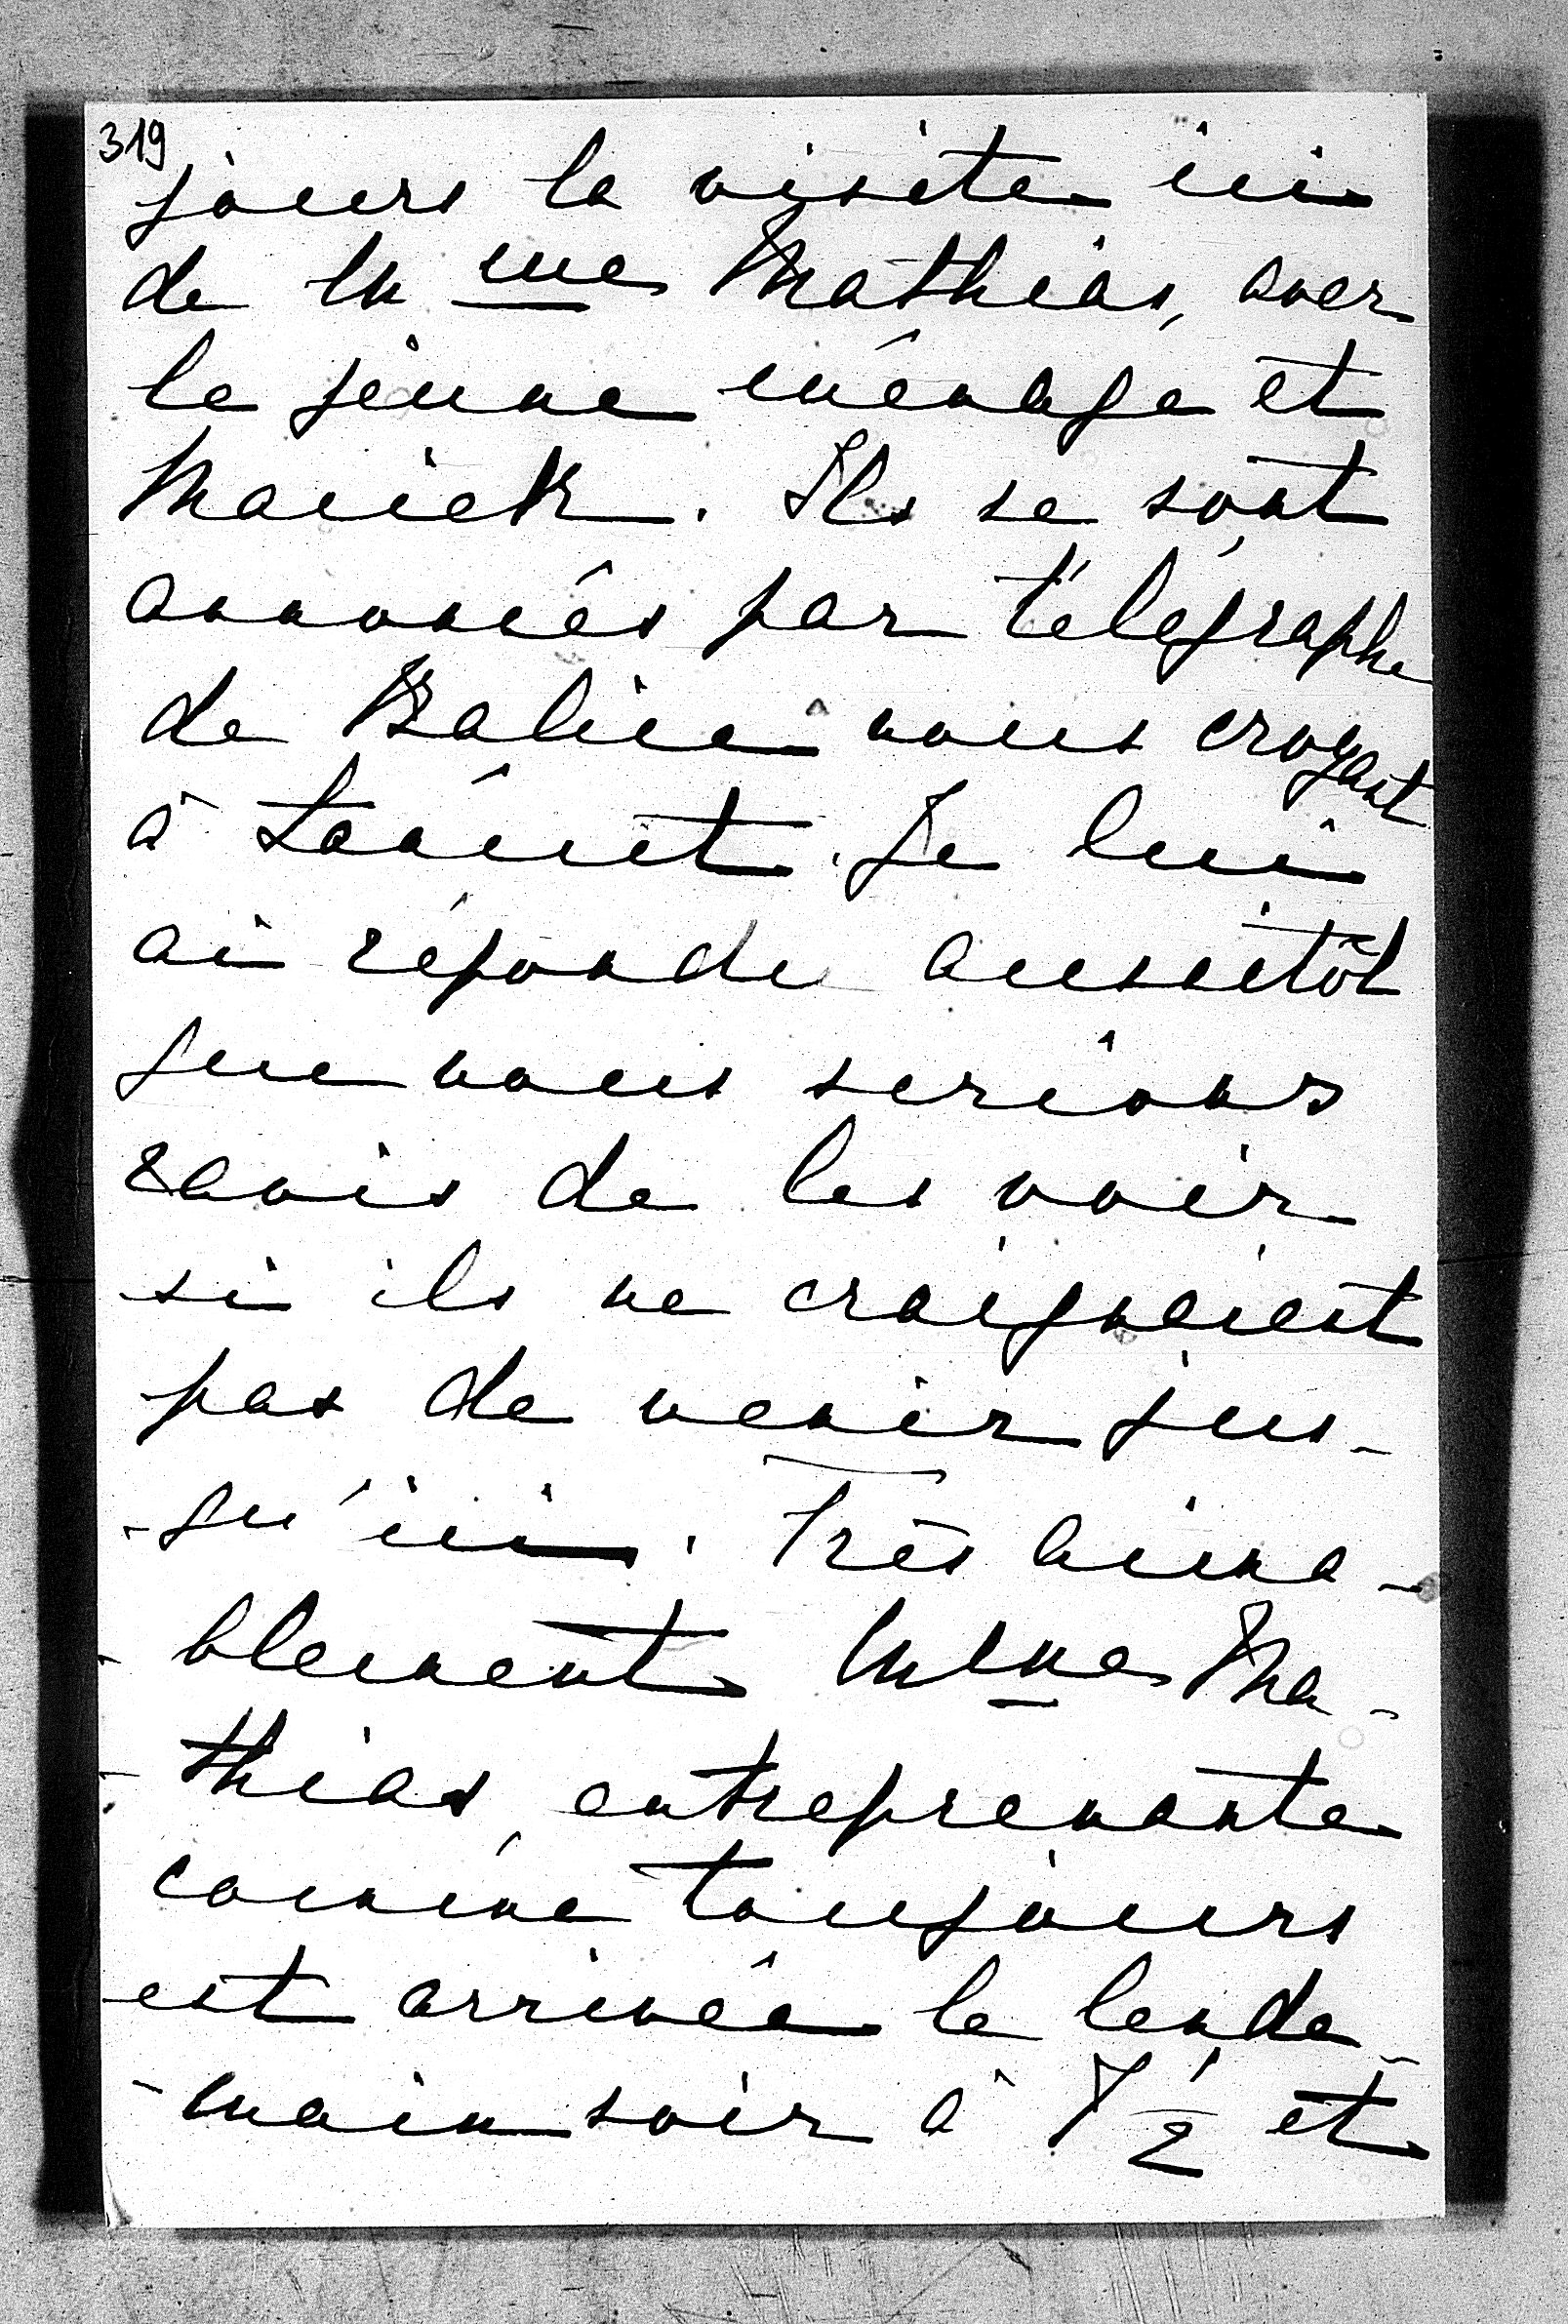 319
jours la visite ici
de M me Mathias, avec
le jeune ménage et
Maciek. Ils se sont
annoncés par télégraphe
de Balice nous croyant
à Łańcut. Je lui
ai répondu aussitôt
que nous serions
ravis de les voir
si ils ne craignaient
pas de venir jus-
-qu'ici. Très aima-
-blement Mme Ma-
-thias, entreprenante
comme toujours
est arrivée le lende-
-main soir à 7 1/2 et